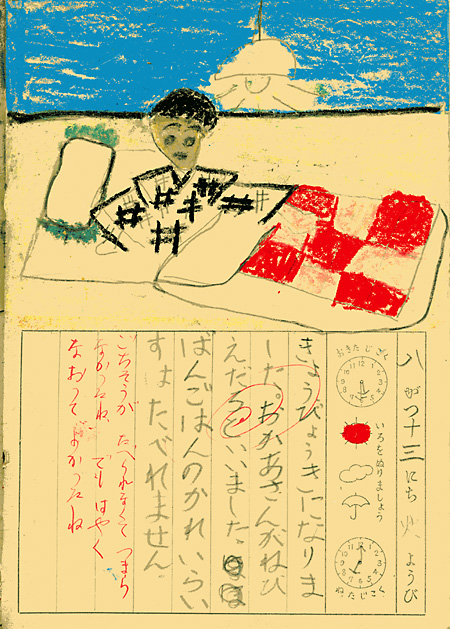 八がつ十三にち火ようび
おきたじこく
いろをぬりましょう
ねたじこく
きょうびょうきになりま
した。おかあさんがねび
えだうといいました。
ばんごはんのかれいらい
すは たべれません。
ごちそうが たべられなくて つまら
なかったね。でも はやく
なおって よかったね